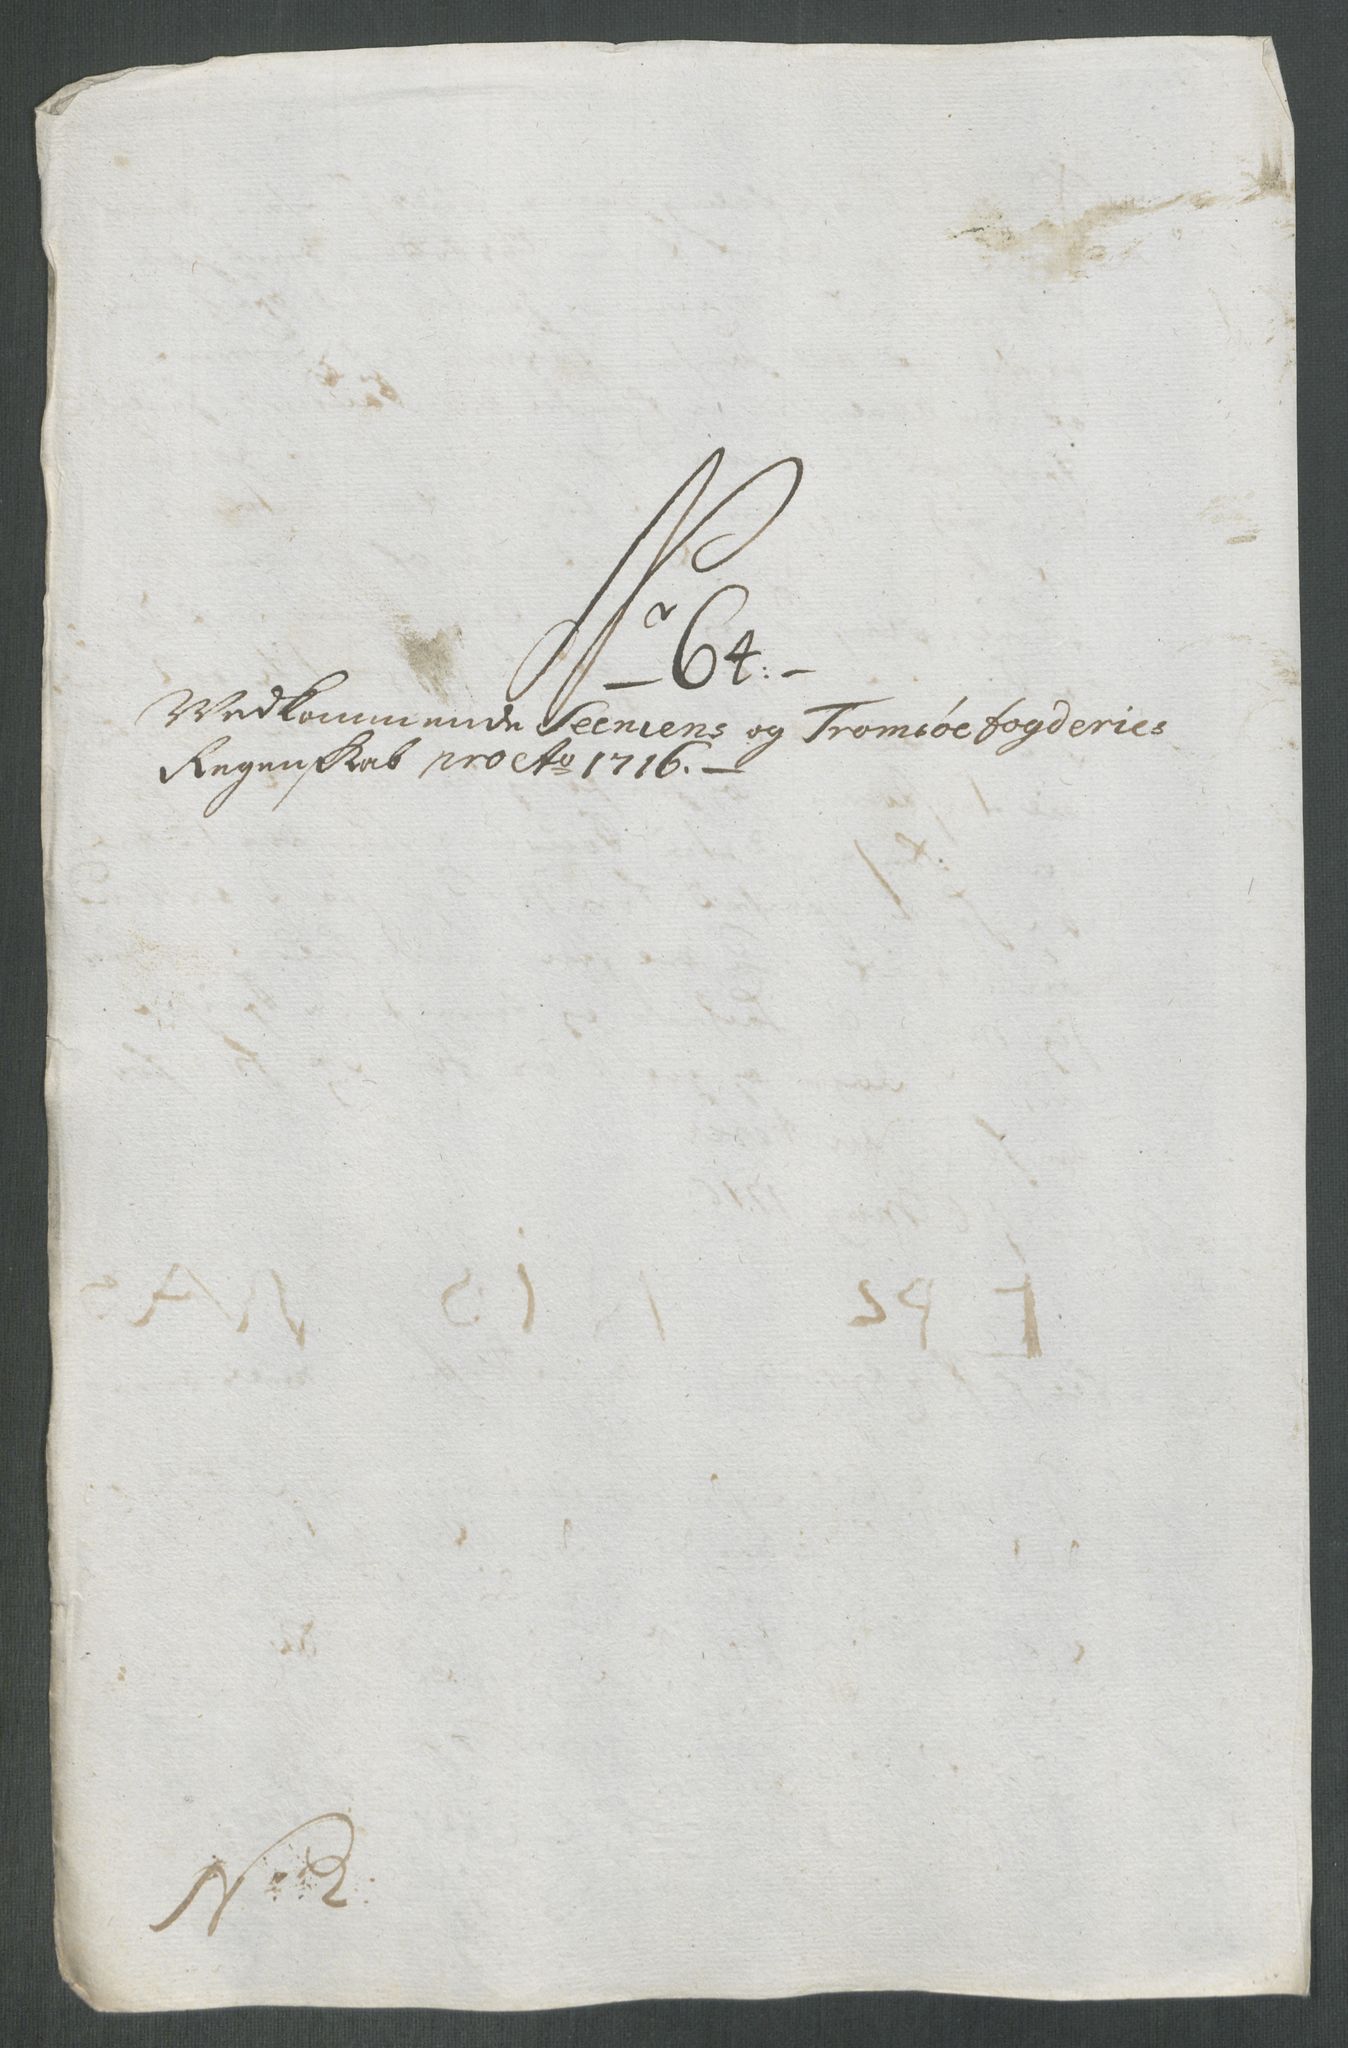 Nr 64:
Wedkommende Seeniens og Tromsøe fogderies
Regenskab pro Ao 1716.
No 2